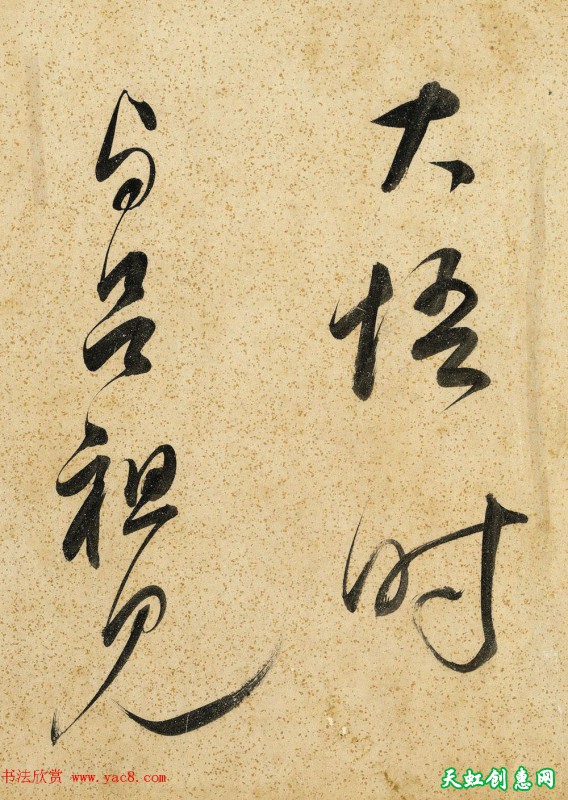 大悟时
与吕祖见
书法欣赏 www.yac8.com
天虹创惠网